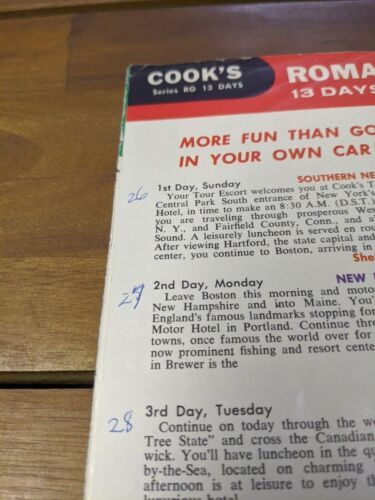 COOK'S
Series RG 13 DAYS
ROMA
13 DAYS
MORE FUN THAN GO
IN YOUR OWN CAR
26
1st Day, Sunday
SOUTHERN NE
Your Tour Escort welcomes you at Cook's T
Central Park South entrance of New York's
Hotel, in time to make an 8:30 A.M. (D.S.T.)
you are traveling through prosperous Wes
N. Y., and Fairfield County, Conn., and al
Sound. A leisurely luncheon is served en rou
After viewing Hartford, the state capital and
center, you continue to Boston, arriving in
She
27
2nd Day, Monday
NEW
Leave Boston this morning and moto
New Hampshire and into Maine. You'
England's famous landmarks stopping for
Motor Hotel in Portland. Continue thro
towns, once famous the world over for
now prominent fishing and resort cente
in Brewer is the
28
3rd Day, Tuesday
Continue on today through the wo
Tree State" and cross the Canadian
wick. You'll have luncheon in the qu
by-the-Sea, located on charming
afternoon is at leisure to enjoy th
luxurious hotel